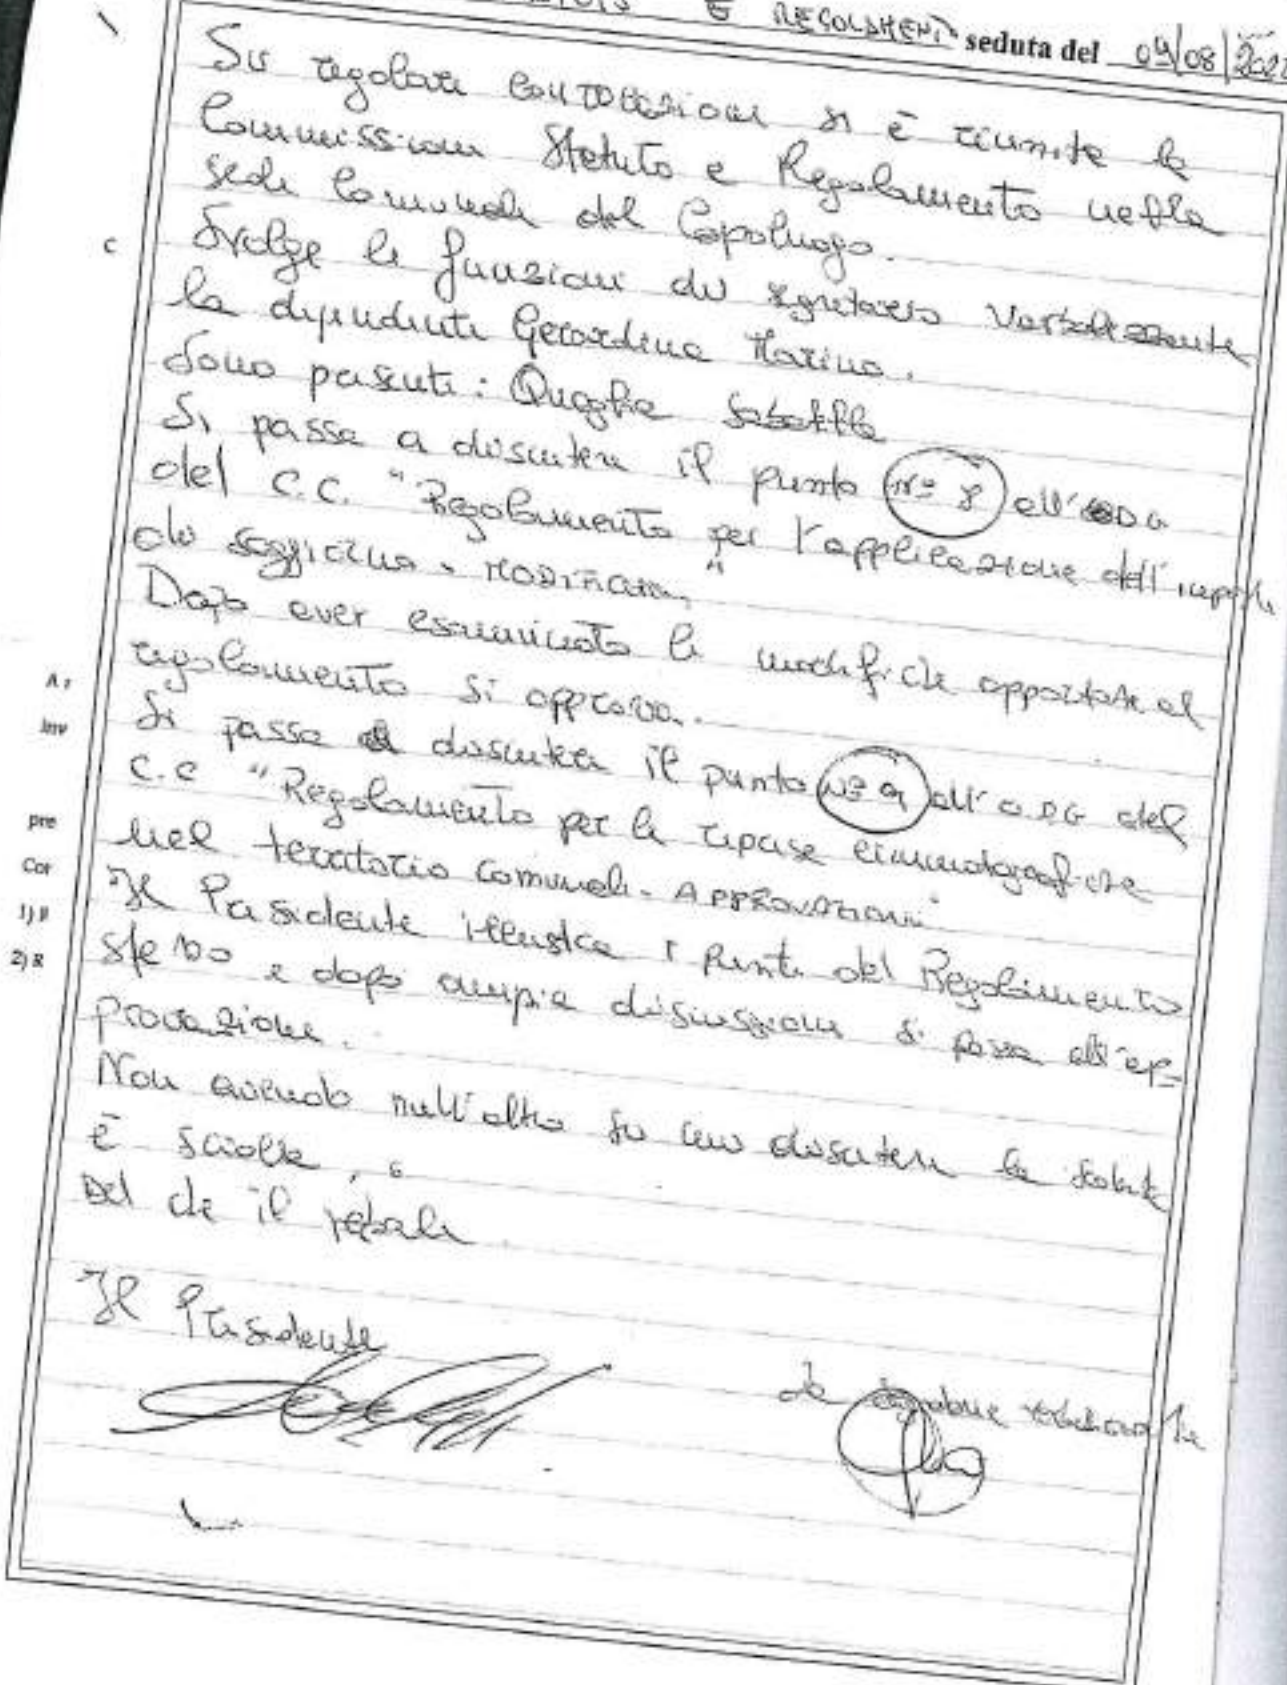 E REGOLAMENTI seduta del 09/08/202
Su regolare convocazione si è riunita la
Commissione Statuto e Regolamento nella
sede Comunale del Capoluogo.
Svolge le funzioni di segretario verbalizzante
la dipendente Gerardina Marino.
Sono presenti: Quaglia Sabatella
Si passa a discutere il punto N° 8 all'ODG
del C.C. "Regolamento per l'applicazione dell'imposta
di soggiorno - MODIFICA"
Dopo aver esaminato le modifiche apportate al
regolamento si approva.
Si passa a discutere il punto N° 9 all'ODG del
C.C "Regolamento per le riprese cinematografiche
nel territorio comunale - APPROVAZIONE"
Il Presidente illustra i punti del Regolamento
stesso e dopo ampia discussione si passa all'ap-
provazione.
Non avendo null'altro su cui discutere la seduta
è sciolta,
Del che il verbale
Il Presidente
La segretaria verbalizzante
c
A:
Inv
pre
Cor
1) P
2) R